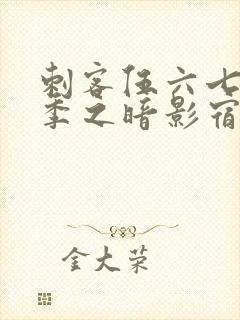 刺客伍六七
季之暗影宿
金大荣